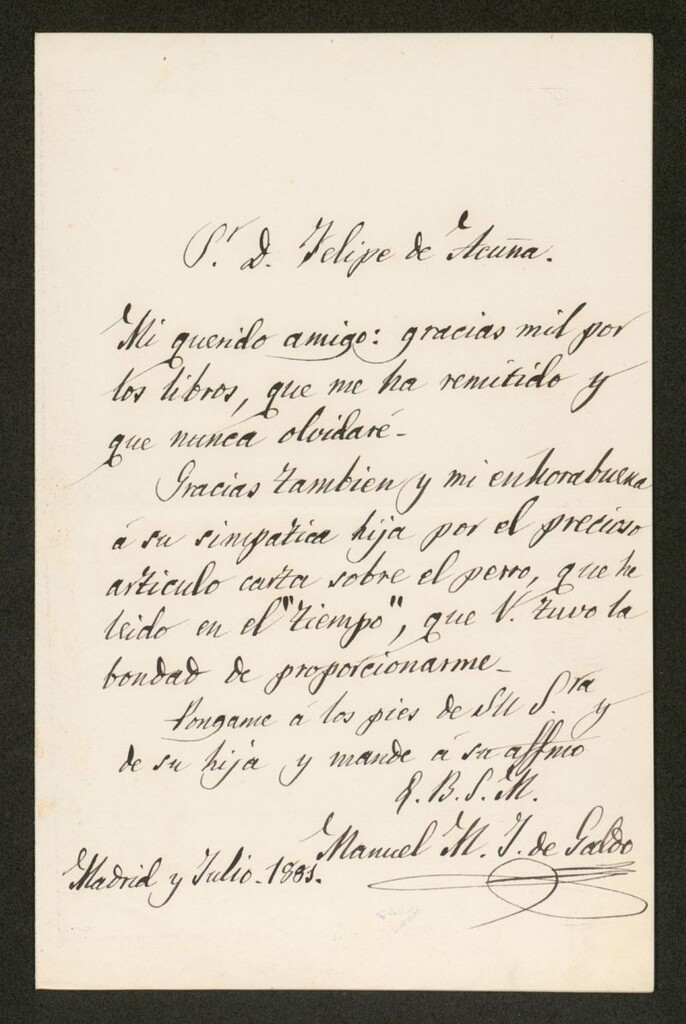 Sr. D. Felipe de Acuña.
Mi querido amigo: gracias mil por
los libros, que me ha remitido y
que nunca olvidaré-
Gracias tambien y mi enhorabuena
á su simpatica hija por el precioso
articulo carta sobre el perro, que he
leido en el "tiempo", que V. tuvo la
bondad de proporcionarme-
Pongame á los pies de su Sra y
de su hija y mande á su affmo
Q. B. S. M.
Manuel M. J. de Galdo
Madrid y Julio-1881.